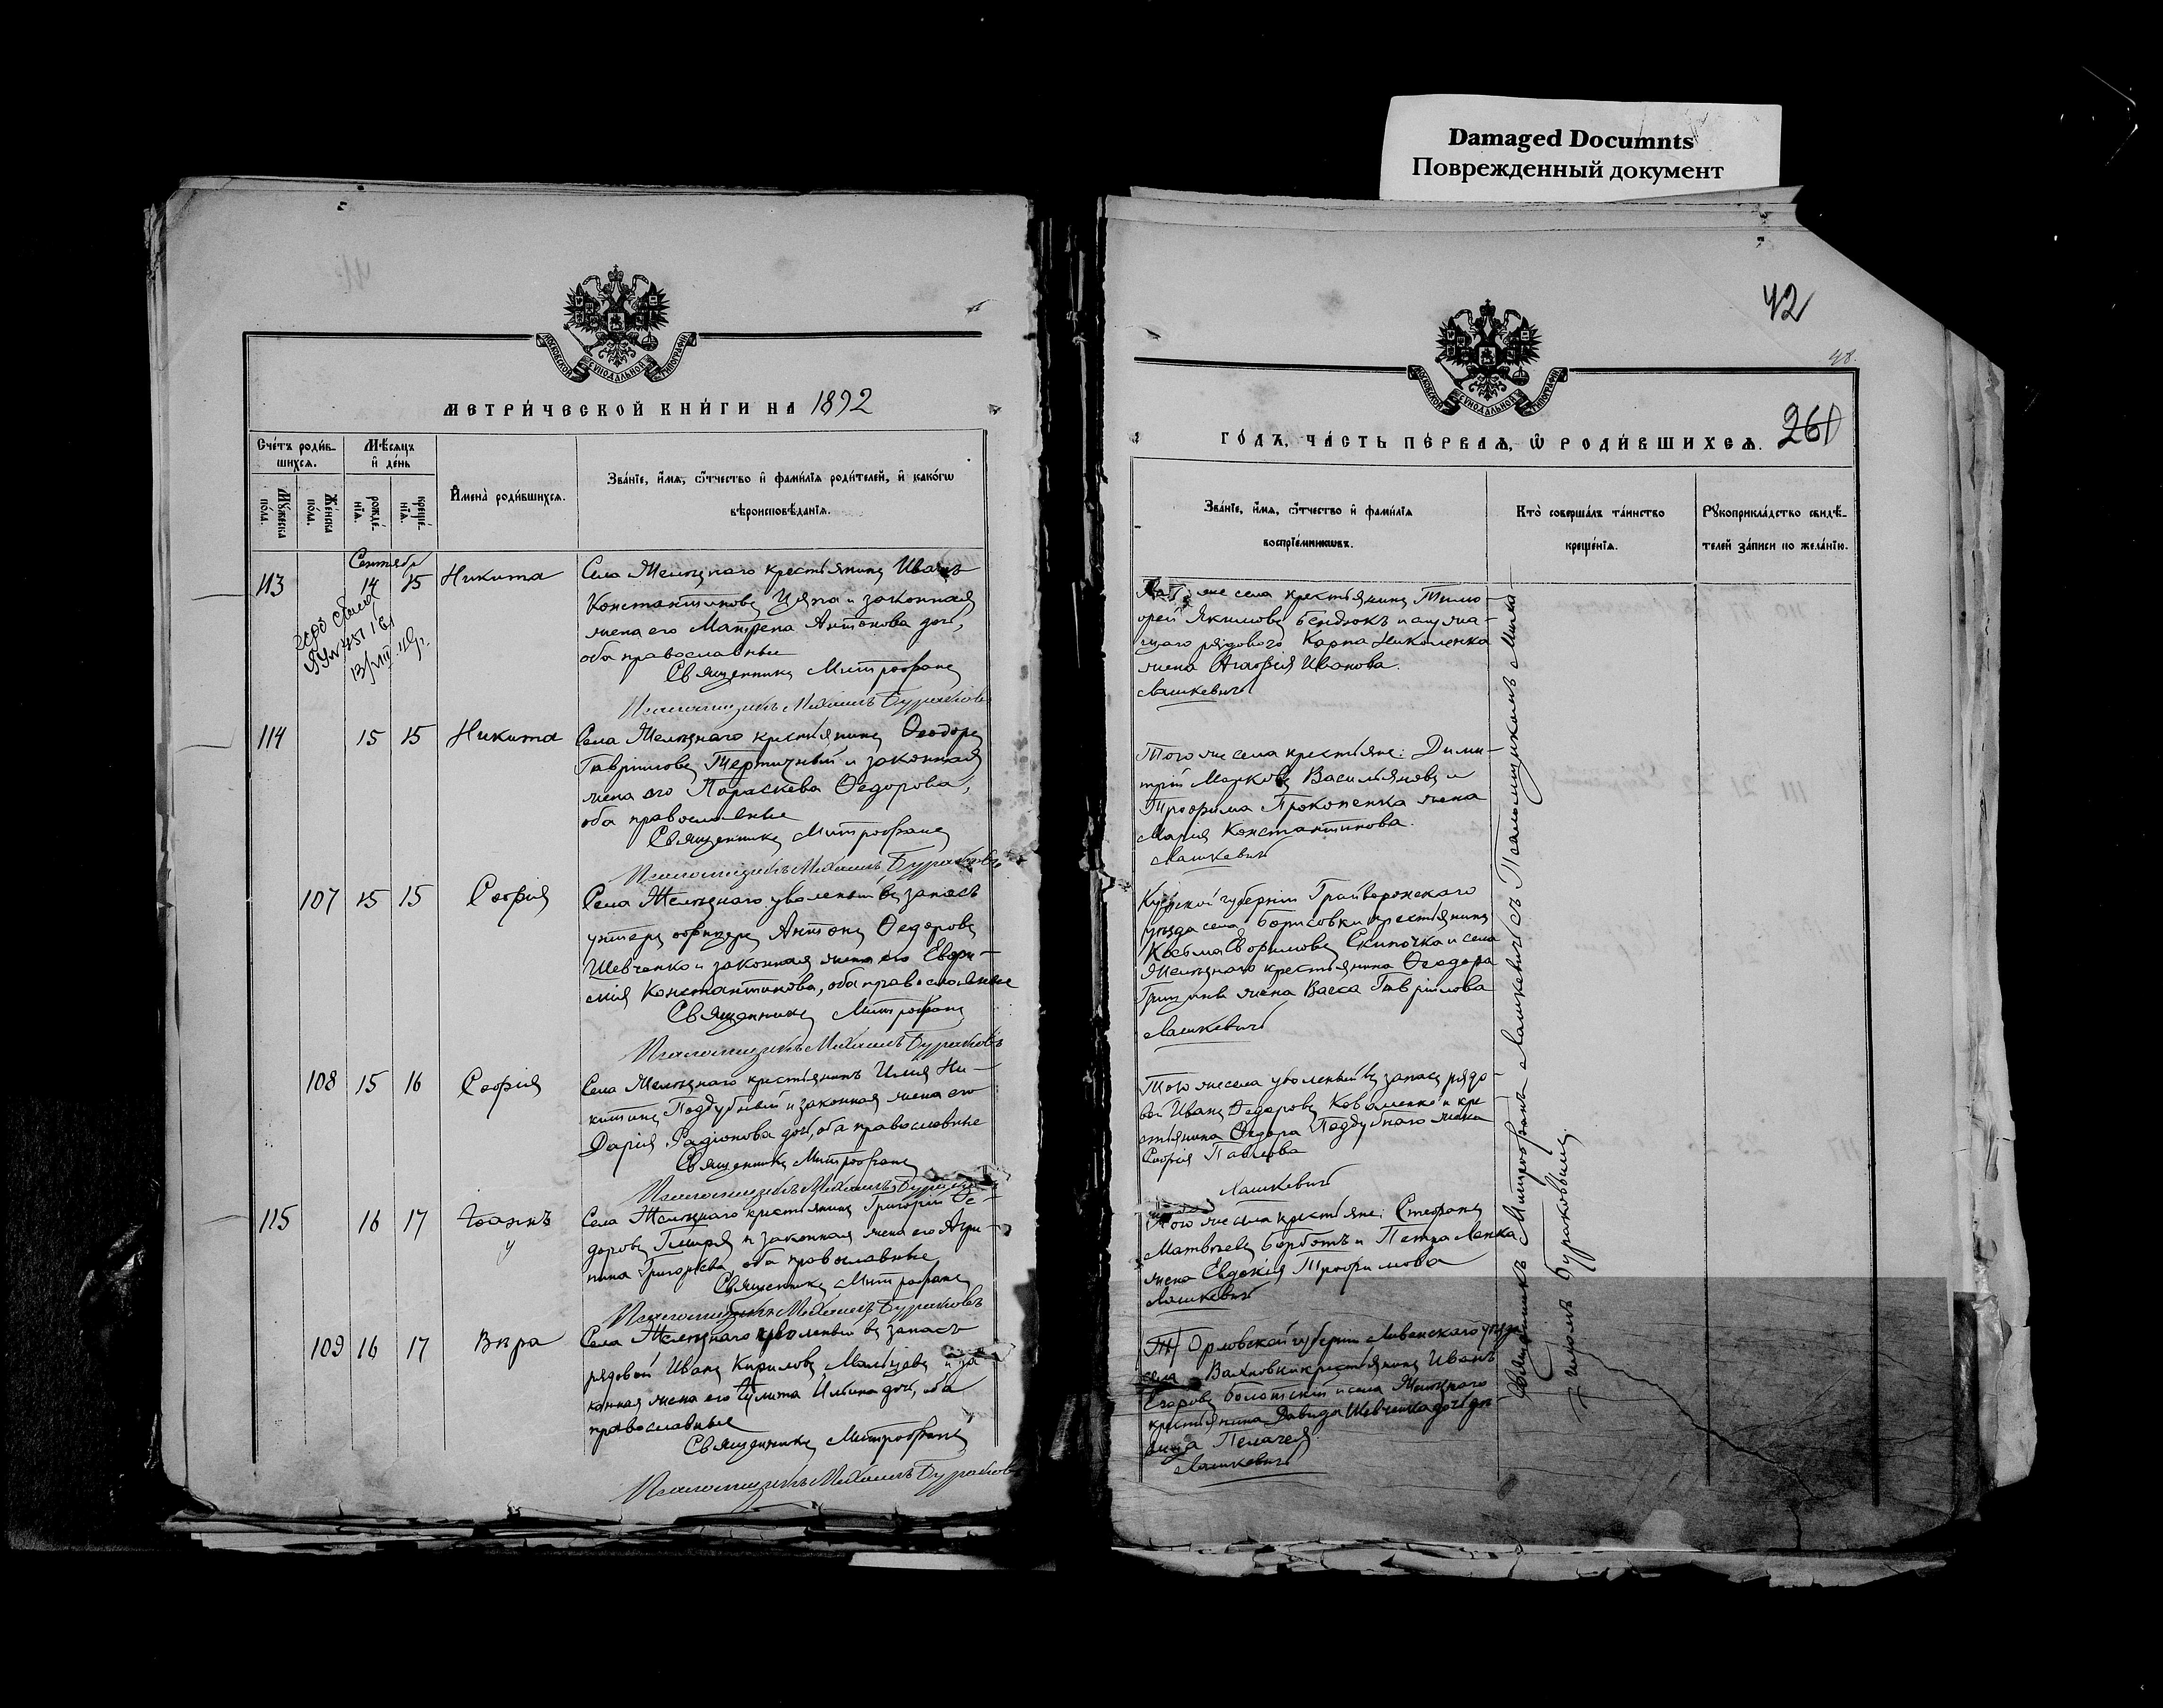 Damaged Documnts
Поврежденный документ
МОСКОВСКОЙ СѴНОДАЛЬНОЙ ТИПОГРАФІИ
МЕТРИ́ЧЕСКОЙ КНИ́ГИ НА 1892
Сче́тъ роди́в-
шихсѧ.
Мѣ́сѧцъ
и҆ де́нь
Мꙋ́жеска
по́ла.
Же́нска
по́ла.
рожде́-
нїѧ.
креще́-
нїѧ.
И҆мена̀ роди́вшихсѧ.
Зва́нїе, и҆́мѧ, ѻ҆́тчество и҆ фами́лїѧ роди́телей, и҆ како́гѡ
вѣроисповѣ́данїѧ.
Сентябрь
113 14 15 Никита
Села Желѣзнаго крестьянинъ Иванъ
Константиновъ и законная
жена его Матрена Антонова дочь,
оба православные
Священникъ Митрофанъ
Псаломщикъ Михаилъ Бураковъ
114 15 15 Никита
Села Желѣзнаго крестьянинъ Ѳеодоръ
Гавріиловъ Тертичный и законная
жена его Параскева Ѳедорова,
оба православные
Священникъ Митрофанъ
Псаломщикъ Михаилъ Бураковъ
107 15 15 Софія
Села Желѣзнаго уволеный въ запасъ
унтеръ офицеръ Антонъ Ѳедоровъ
Шевченко и законная жена его Евфи-
мія Константинова, оба православные
Священникъ Митрофанъ
Псаломщикъ Михаилъ Бураковъ
108 15 16 Софія
Села Желѣзнаго крестьянинъ Илья Ни-
китинъ Поддубный и законная жена его
Дарія Радіонова дочь, оба православные
Священникъ Митрофанъ
Псаломщикъ Михаилъ Бураковъ
115 16 17 Іоаннъ
Села Желѣзнаго крестьянинъ Григорій Ѳе-
доровъ и законная жена его Агри-
пина Григорьева, оба православные
Священникъ Митрофанъ
Псаломщикъ Михаилъ Бураковъ
109 16 17 Вѣра
Села Желѣзнаго уволеный въ запасъ
рядовой Иванъ Кириловъ Мальцевъ и за-
конная жена его Улита Ильина дочь, оба
православные
Священникъ Митрофанъ
Псаломщикъ Михаилъ Бураковъ
42
МОСКОВСКОЙ СѴНОДАЛЬНОЙ ТИПОГРАФІИ
261
ГО́ДЪ, ЧА́СТЬ ПЕ́РВАѦ, Ѡ҆ РОДИ́ВШИХСѦ.
Зва́нїе, и҆́мѧ, ѻ҆́тчество и҆ фами́лїѧ
воспрїе́мникѡвъ.
Кто̀ соверша́лъ та́инство
креще́нїѧ.
Рꙋкоприкла́дство свидѣ́-
телей за́писи по жела́нїю.
же села крестьянинъ Тимо-
фей Якимовъ Бендюкъ и
рядового Карпа Николенка
жена Агафія Иванова.
Лашкевичъ
Того же села крестьяне: Дими-
трій Марковъ Васильяновъ и
Трофима Прокопенка жена
Марія Константинова.
Лашкевичъ
Курской губерніи Грайворонскаго
уѣзда села Борисовки крестьянинъ
Косьма Скипочка и села
Желѣзнаго крестьянина Ѳеодора
жена Васса Гавріилова
Лашкевичъ
Того же села уволеный въ запасъ рядо-
вой Иванъ Ѳедоровъ Коваленко и кре-
стьянина Ѳедора Поддубнаго жена
Софія Павлова
Лашкевичъ
Того же села крестьяне: Стефанъ
Матвѣевъ Борботъ и Петра Ленка
жена Евдокія Трофимова
Лашкевичъ
Орловской губерніи Ливенскаго уѣзда
села крестьянинъ Иванъ
Егоровъ и села Желѣзнаго
крестьянина Давида Шевченка дочь дѣ-
вица Пелагея.
Лашкевичъ
Священникъ Митрофанъ Лашкевичъ съ Псаломщикомъ Михаи-
ломъ Бураковымъ.